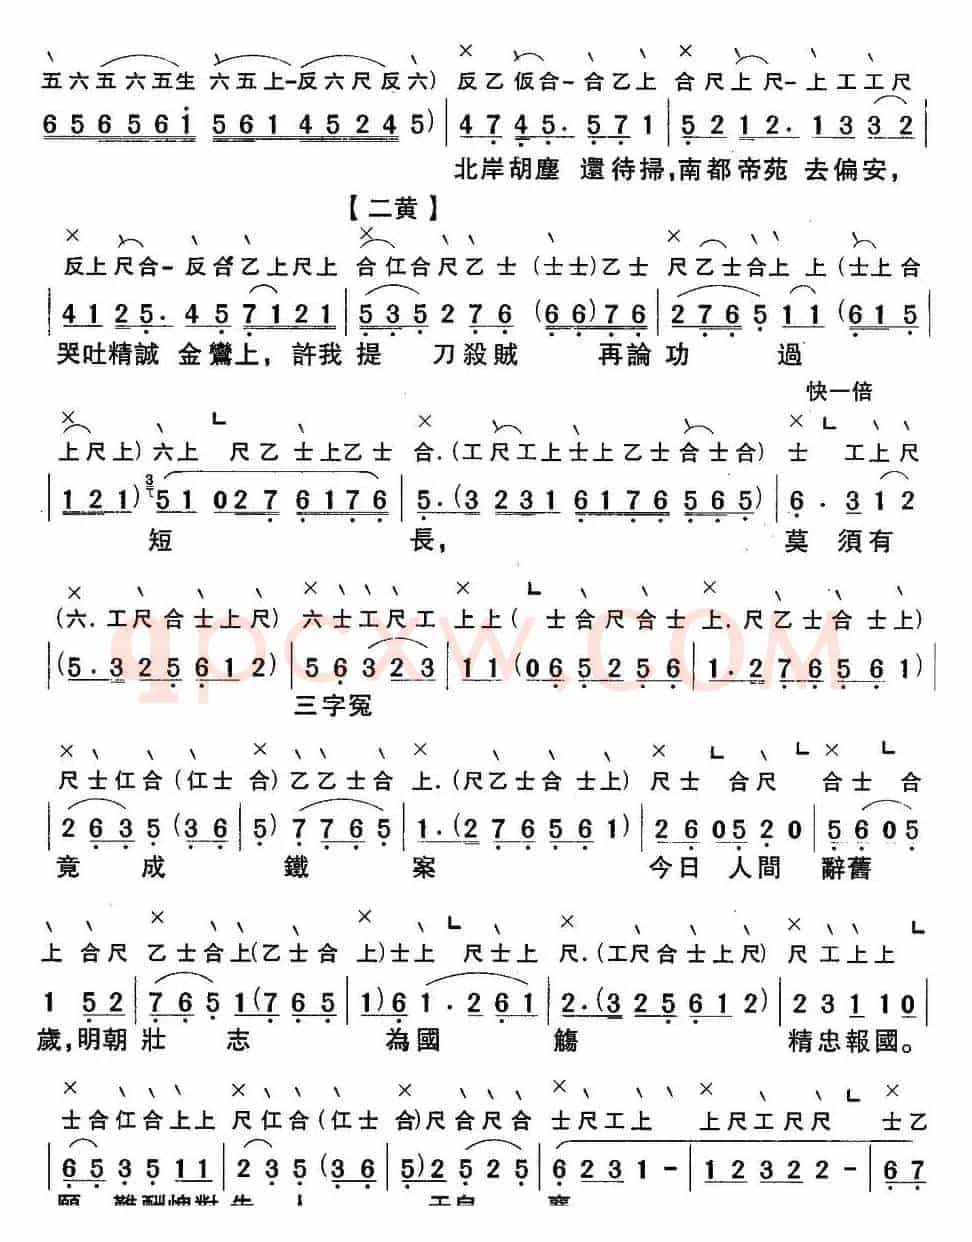 五六五六五生 六五上-反六尺反六) 反乙仮合-合乙上 合尺上尺-上工工尺
6 5 6 5 6 1 5 6 1 4 5 2 4 5) 4 7 4 5. 5 7 1 5 2 1 2. 1 3 3 2
北岸胡塵 還待掃,南都帝苑 去偏安,
【二黄】
反上尺合-反合乙上尺上 合仜合尺乙士 (士士)乙士 尺乙士合上 上 (士上合
4 1 2 5. 4 5 7 1 2 1 5 3 5 2 7 6 (6 6) 7 6 2 7 6 5 1 1 (6 1 5
哭吐精誠 金鸞上, 許我提 刀殺賊 再論功 過
快一倍
上尺上) 六上 尺乙 士上乙士 合.(工尺工上士上乙士合士合) 士 工上尺
1 2 1) 5 1 0 2 7 6 1 7 6 5. (3 2 3 1 6 1 7 6 5 6 5) 6. 3 1 2
短 長, 莫 須有
(六.工尺合士上尺) 六士工尺工 上上( 士合尺合士 上.尺乙士合 士上)
(5. 3 2 5 6 1 2) 5 6 3 2 3 1 1 (0 6 5 2 5 6 1. 2 7 6 5 6 1)
三字冤
qpcxw.com
尺士仜合 (仜士 合)乙乙士合 上.(尺乙士合 士上) 尺士 合尺 合士 合
2 6 3 5 (3 6 5) 7 7 6 5 1. (2 7 6 5 6 1) 2 6 0 5 2 0 5 6 0 5
竟 成 鐵 案 今日 人間 辭舊
上 合尺 乙士合上(乙士合 上)士上 尺士上 尺.(工尺合士上尺) 尺工上上
1 5 2 7 6 5 1 (7 6 5 1) 6 1. 2 6 1 2. (3 2 5 6 1 2) 2 3 1 1 0
歲,明朝壯 志 為國 觴 精忠報國。
士合仜合上上 尺仜合(仜士 合)尺合尺合 士尺工上 上尺工尺尺 士乙
6 5 3 5 1 1 2 3 5 (3 6 5) 2 5 2 5 6 2 3 1 - 1 2 3 2 2 - 6 7